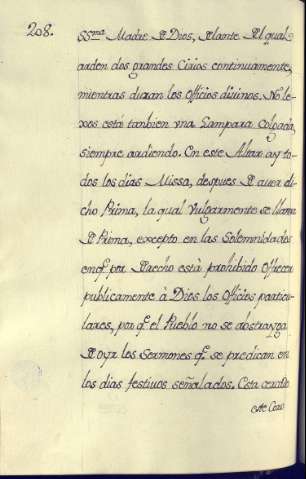 208.
SSma Madre D Dios, Delante Del qual
arden dos grandes Cirios continuamente,
mientras duran los Officios divinos. No le-
xos está tanbien vna Lampara Colgada,
siempre ardiendo. En este Altar ay to-
dos los dias Missa, despues D auer di-
cho Prima, la qual Vulgarmente se llama
D Prima, excepto en las Solemnidades
enq̃ por Drecho está prohibido Offrecer
publicamente à Dios los Officios particu-
lares, por q̃ el Pueblo no se abstrayga
D oyr los Sermones q̃ se predican en
los dias festiuos señalados. Esta
este Coro